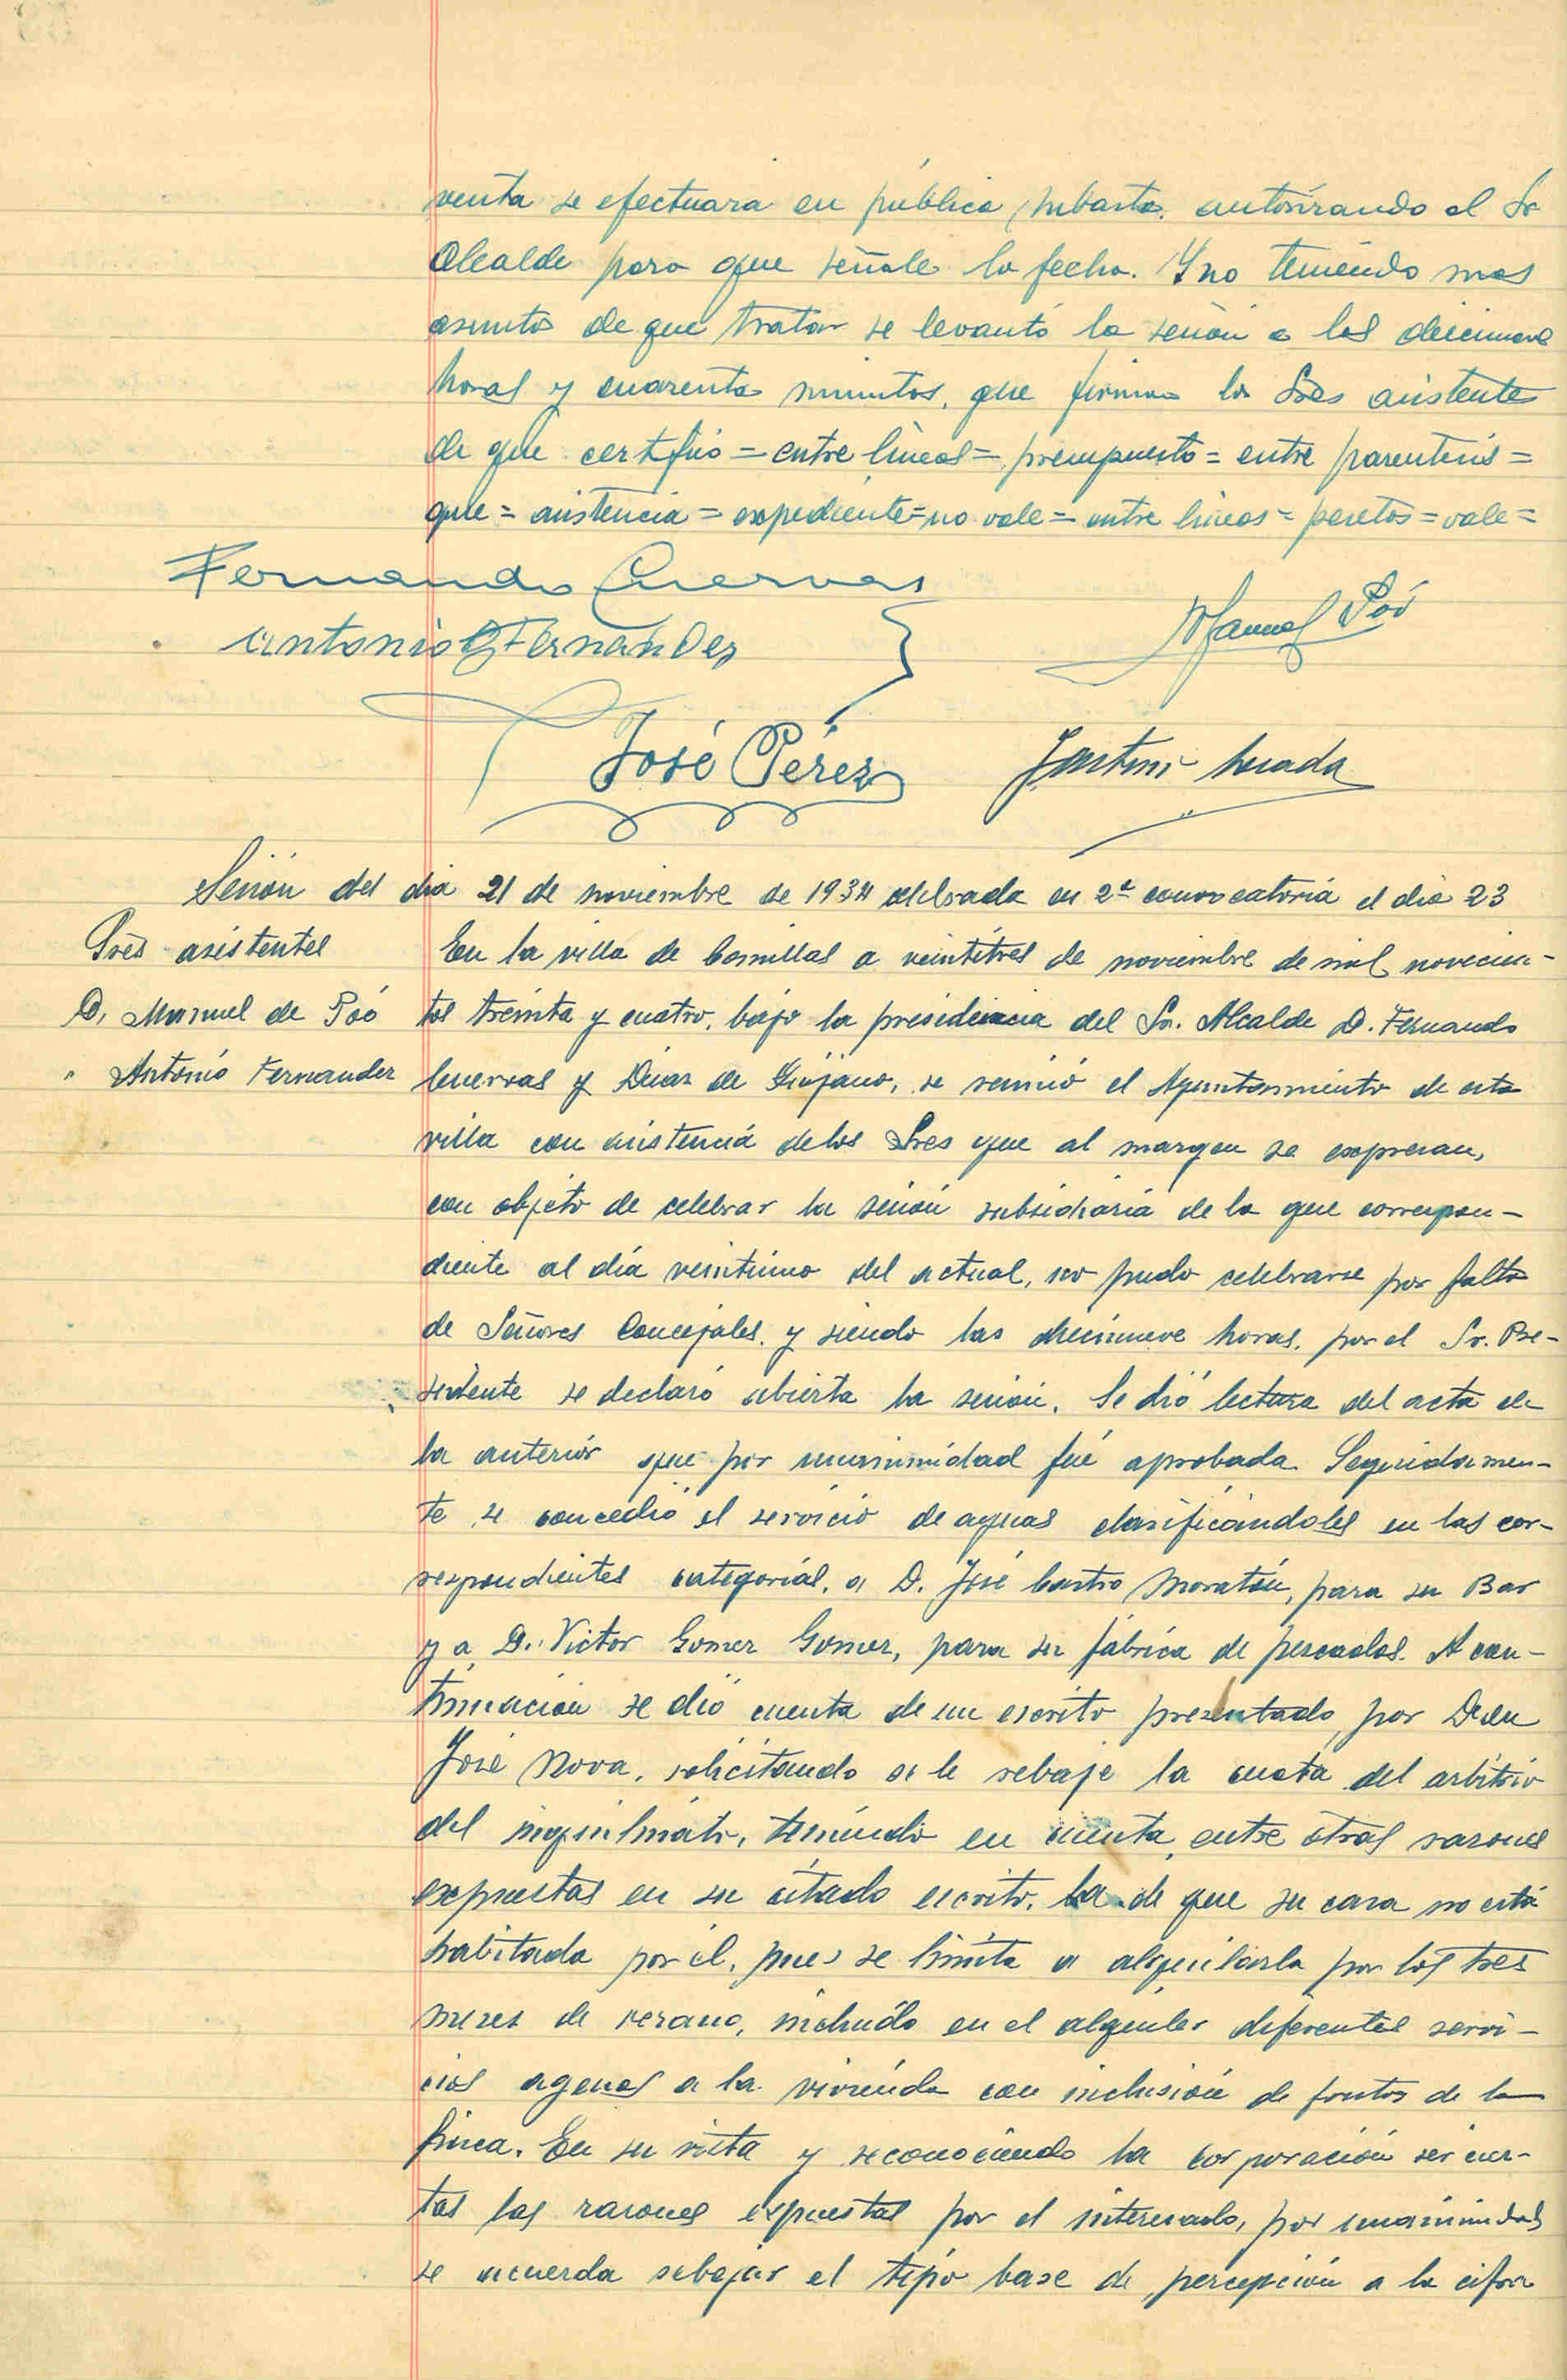 venta se efectuara en pública subasta. autorizando al Sr
Alcalde para que señale la fecha. Y no teniendo mas
asuntos de que tratar se levantó la sesión a las diecinueve
horas y cuarenta minutos, que firman los Sres asistentes
de que certifico = entre lineas = presupuesto = entre parentesis =
que = asistencia = expediente = no vale = entre lineas = pesetas = vale =
Fernando Cuervas
Manuel Póo
Antonio Fernandez
José Pérez
Sesión del dia 21 de noviembre de 1934 celebrada en 2ª convocatoria el dia 23
Sres asistentes
En la villa de Comillas a veintitres de noviembre de mil novecien-
D. Manuel de Póo
tos treinta y cuatro, bajo la presidencia del Sr. Alcalde D. Fernando
" Antonio Fernandez
Cuervas y Diaz de Quijano, se reunió el Ayuntamiento de esta
villa con asistencia de los Sres que al margen se expresan,
con objeto de celebrar la sesión subsidiaria de la que correspon-
diente al día veintiuno del actual, no pudo celebrarse por falta
de Señores Concejales. y siendo las diecinueve horas, por el Sr. Pre-
sidente se declaró abierta la sesión. Se dió lectura del acta de
la anterior que por unanimidad fué aprobada. Seguidamen-
te se concedió el servicio de aguas clasificandoles en las cor-
respondientes categorias, a D. José Castro Moratón, para su Bar
y a D. Victor Gomez Gomez, para su fábrica de pescados. A con-
tinuación se dió cuenta de un escrito presentado por Don
José Nova, solicitando se le rebaje la cuota del arbitrio
del inquilinato, teniendo en cuenta, entre otras razones
expuestas en su citado escrito, la de que su casa no está
habitada por él, pues se limita a alquilarla por los tres
meses de verano, incluido en el alquiler diferentes servi-
cios agenos a la vivienda con inclusión de frutos de la
finca. En su vista y reconociendo la corporación ser cier-
tas las razones expuestas por el interesado, por unanimidad
se acuerda rebajar el tipo base de percepción a la cifra